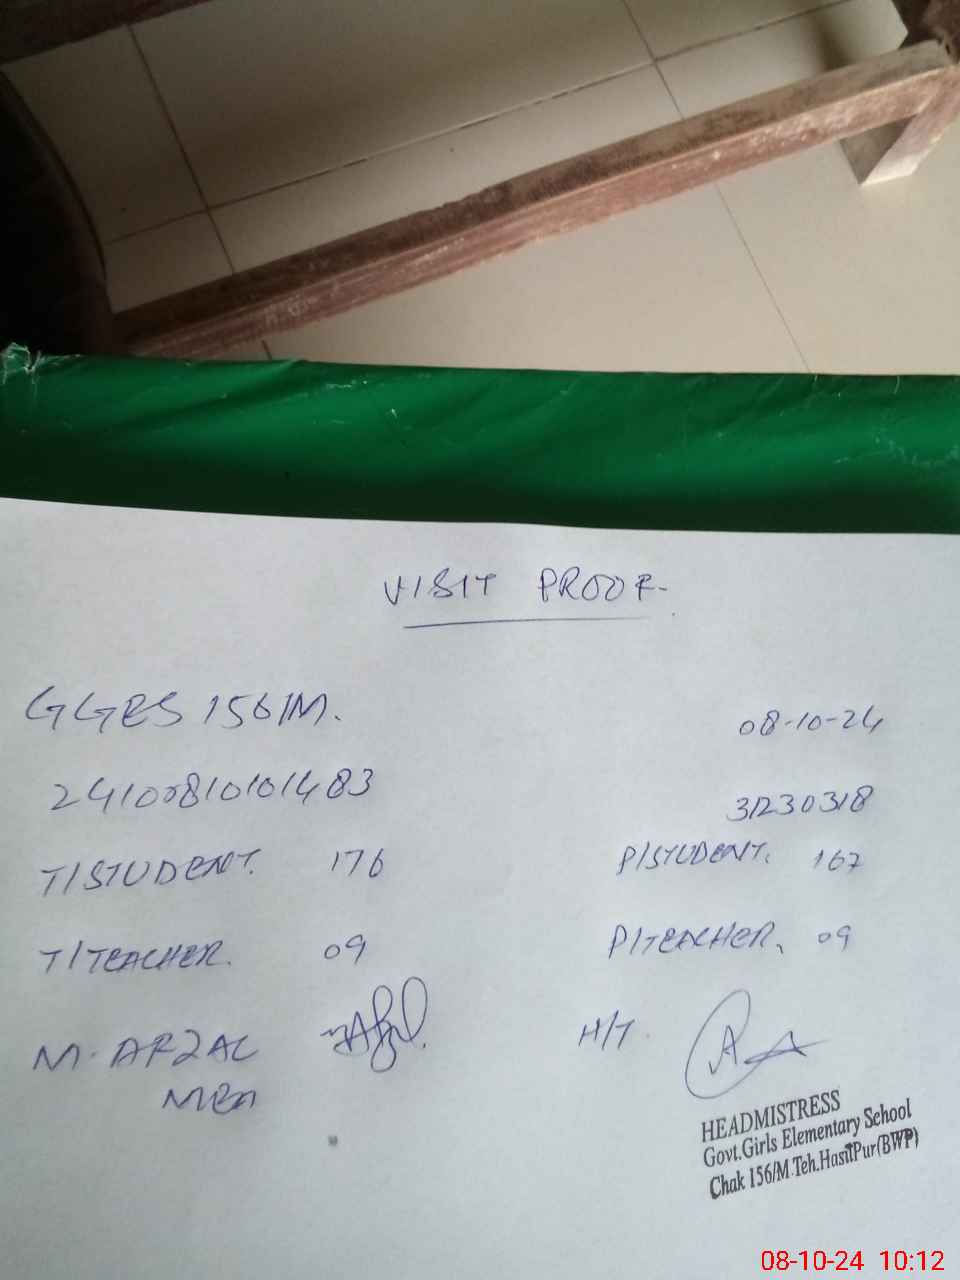 VISIT PROOF.
GGES 156/M. 08-10-24
24100810101483 31230318
T/STUDENT. 176 P/STUDENT. 167
T/TEACHER. 09 P/TEACHER. 09
M. AFZAL H/T.
MEA
HEADMISTRESS
Govt.Girls Elementary School
Chak 156/M.Teh.HasilPur(BWP)
08-10-24 10:12